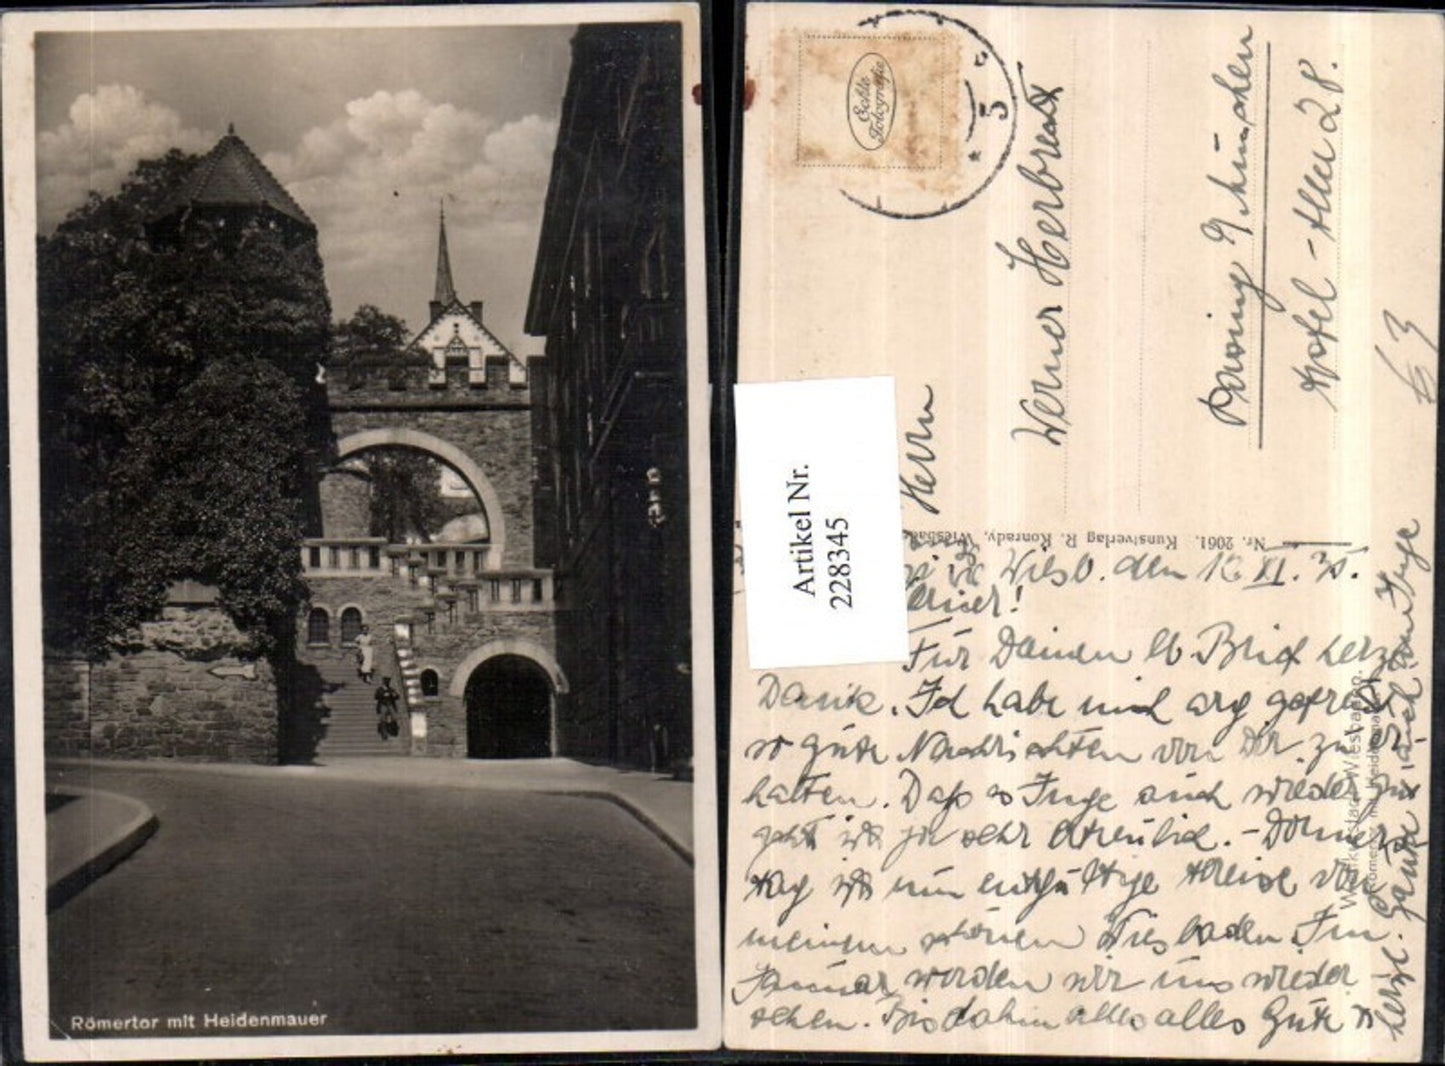 Römertor mit Heidenmauer
Artikel Nr.
228345
Echte
Fotografie
5
Herrn
Werner Herbrecht
München
Hotel
63
Nr. 2061. Kunstverlag R. Konrady, Wiesbaden
Wiesb. den XI.
Für Deinen lb. Brief herzl.
Dank. Ich habe mich arg gefreut
so gute Nachrichten von Dir zu er-
halten. Daß es Inge auch wieder gut
geht ist ja sehr erfreulich. - Donners-
tag ist nun endgültige Abreise von
meinem schönen Wiesbaden. Im
Januar werden wir uns wieder
sehen. Bis dahin alles alles Gute
herzl. Grüße auch an Inge
Weltkurstadt Wiesbaden.
Römertor mit Heidenmauer